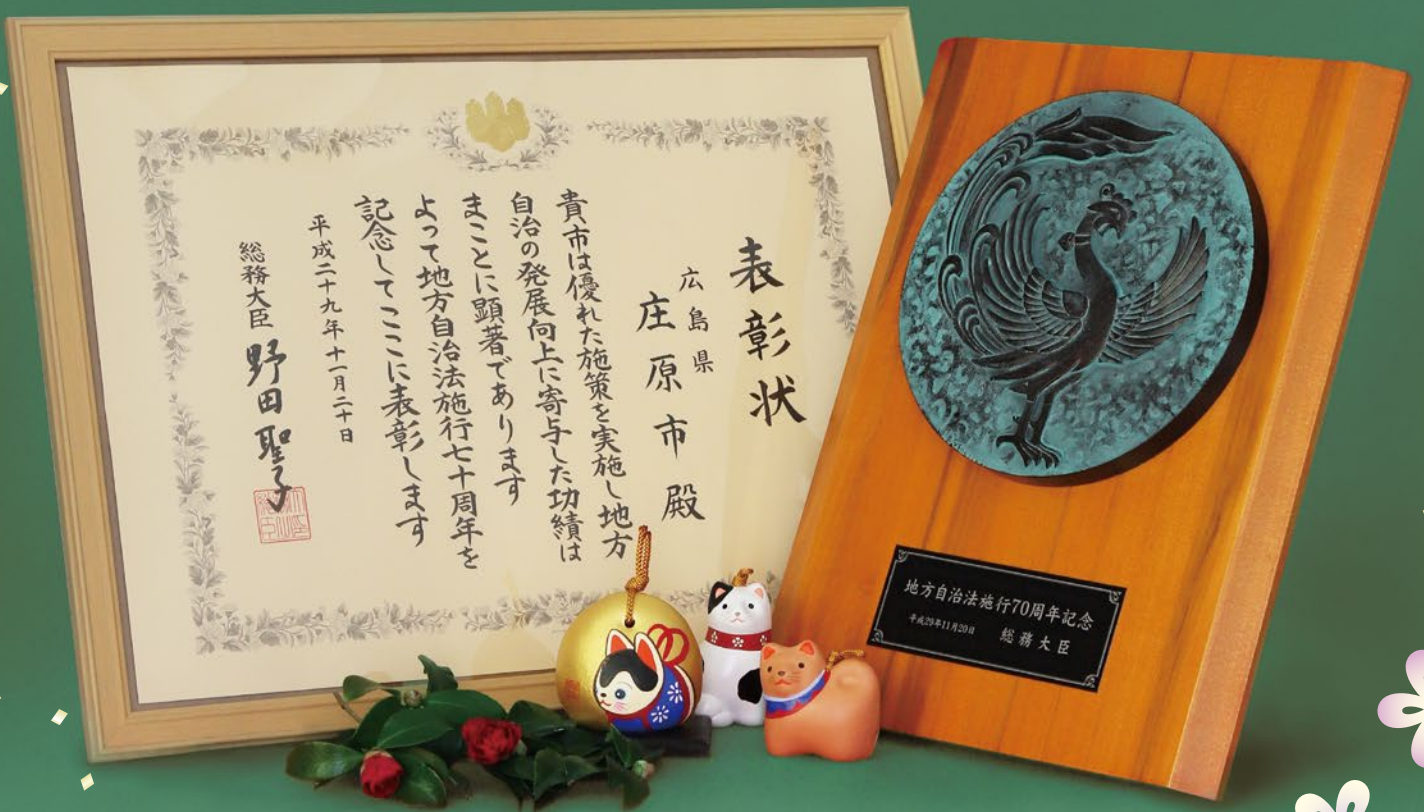 表彰状
広島県
庄原市殿
貴市は優れた施策を実施し地方
自治の発展向上に寄与した功績は
まことに顕著であります
よって地方自治法施行七十周年を
記念してここに表彰します
平成二十九年十一月二十日
総務大臣 野田聖子
地方自治法施行70周年記念
平成29年11月20日 総務大臣